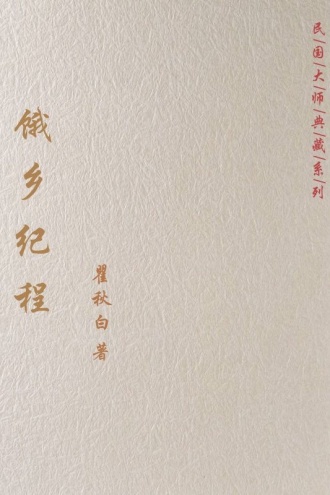 民国大师典藏系列
饿乡纪程
瞿秋白著